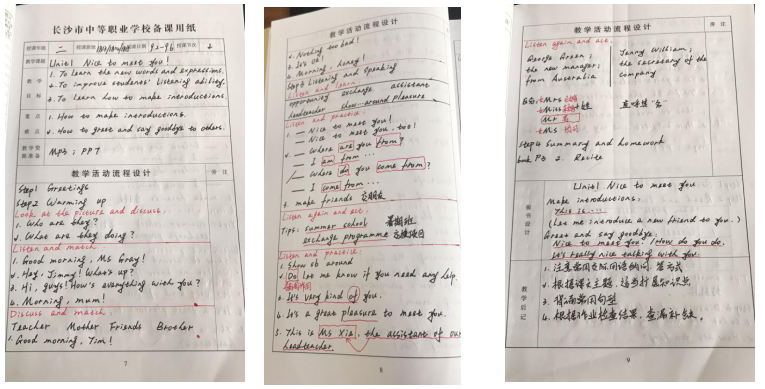 长沙市中等职业学校备课用纸
授课年级 二 授课班级 授课日期 9.2-9.6 授课节次 2
教学课题 Unit1 Nice to meet you!
教学目标 1. To learn the new words and expressions.
2. To improve students' listening abilities.
3. To learn how to make introductions.
重点 1. How to make introductions.
难点 2. How to greet and say goodbye to others.
教学资源准备 Mp3; PPT
教学活动流程设计 旁注
Step1 Greetings
Step2 Warming up
Look at the picture and discuss.
1. Who are they?
2. What are they doing?
Listen and match
1. Good morning, Ms Gray!
2. Hey, Jimmy! What's up?
3. Hi, guys! How's everything with you?
4. Morning, mum!
Discuss and match.
Teacher Mother Friends Brother
1. Good morning, Tim!
7
教学活动流程设计
2. Nothing too bad!
3. It's OK!
4. Morning, honey!
Step3 Listening and Speaking
Listen and learn.
opportunity exchange assistant
headteacher show...around pleasure
Listen and practice
1. — Nice to meet you!
— Nice to meet you, too!
2. — Where are you from?
— I am from ...
— Where do you come from?
— I come from ...
3. make friends 交朋友
Listen again and act.
Tips: summer school 暑期班
exchange programme 交换项目
Listen and practice:
1. Show sb around
2. Do let me know if you need any help.
3. It's very kind of you.
4. It's a great pleasure to meet you.
5. This is Ms Xia, the assistant of our
headteacher.
8
教学活动流程设计 旁注
Listen again and act.
George Green; Jenny William;
the new manager; the secretary of the
from Australia company
Mrs
Miss
Mr
Ms
Step4 Summary and homework
P3 2. Recite
板书设计
Unit1 Nice to meet you
Make introductions:
This is ...
(Let me introduce a new friend to you.)
Greet and say goodbye:
Nice to meet you. / How do you do.
It's really nice talking with you.
教学后记
1. 注意常用交际用语的问、答方式
2. 根据课文主题，适当扩展知识点
3. 背诵常用句型
4. 根据作业检查结果，查漏补缺。
9